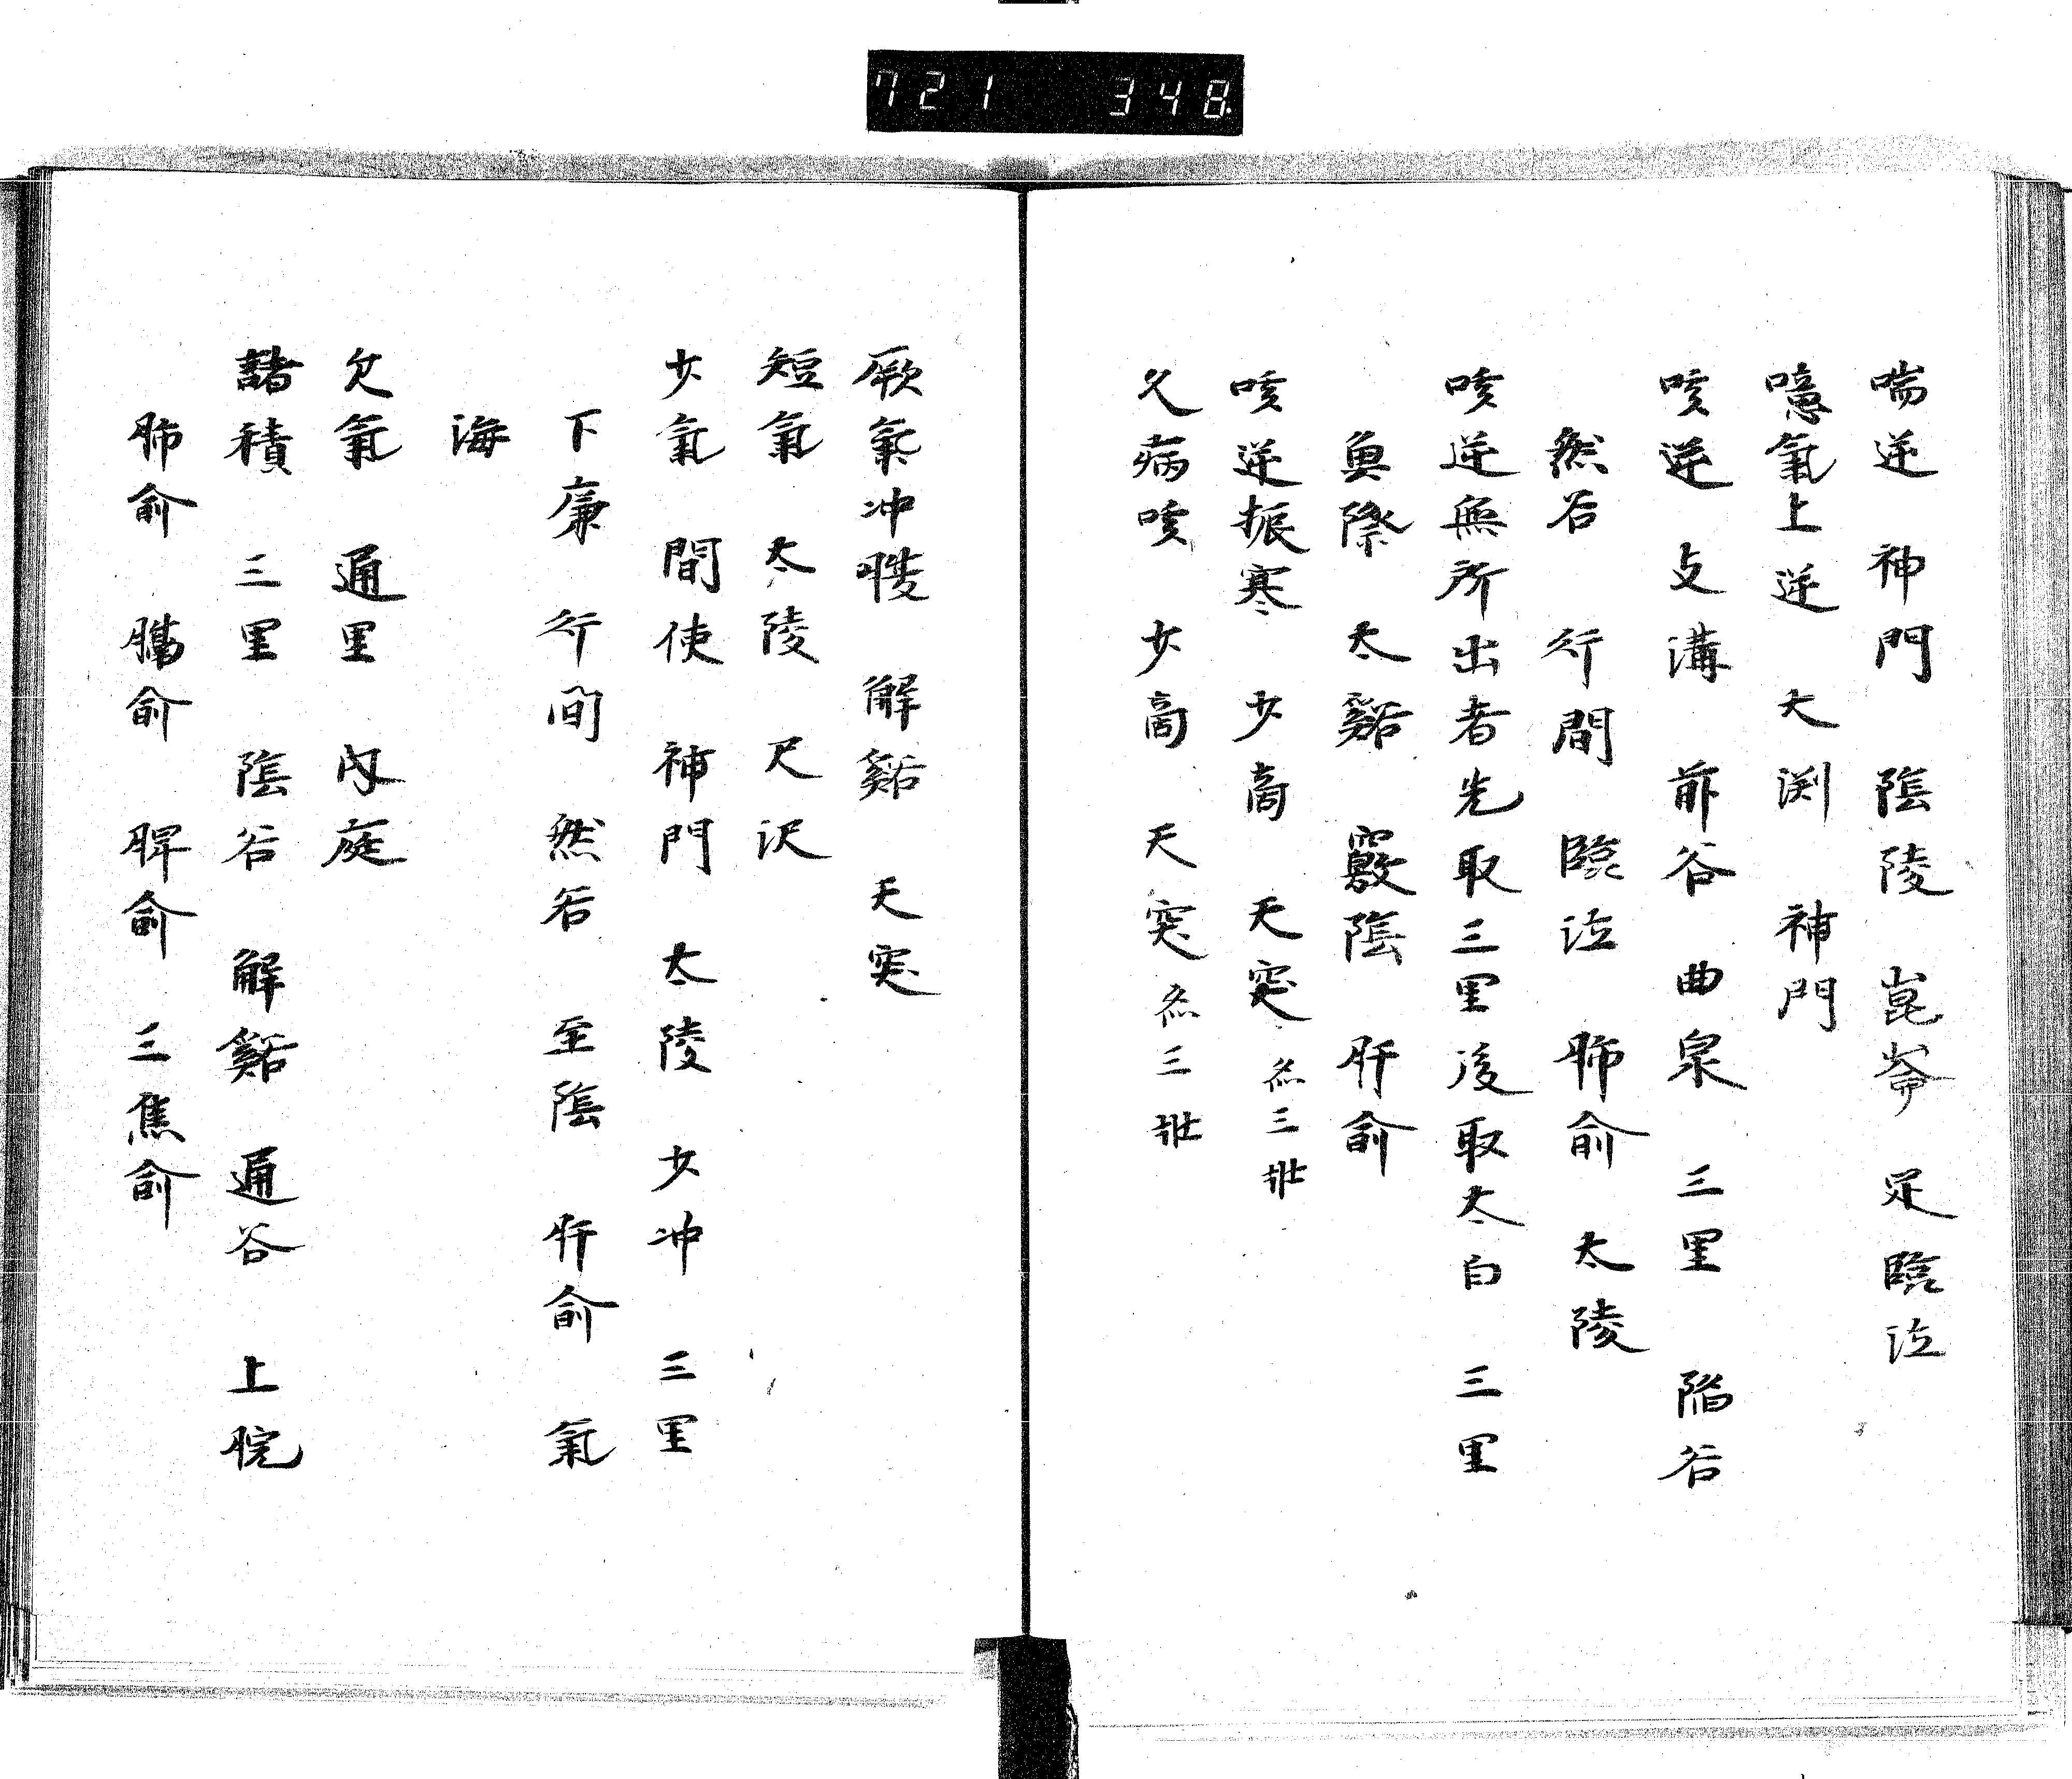 721 348
喘逆 神門 陰陵 崑崙 足臨泣
噫氣上逆 太渊 神門
咳逆 支溝 前谷 曲泉 三里 陥谷
然谷 行間 臨泣 肺俞 太陵
咳逆無所出者先取三里後取太白 三里
魚際 太谿 竅陰 肝俞
咳逆振寒 少商 天突 灸三壯
久病咳 少商 天突 灸三壯
厥氣冲 解谿 天突
短氣 太陵 尺沢
少氣 間使 神門 太陵 少冲 三里
下廉 行间 然谷 至陰 肝俞 氣
海
欠氣 通里 内庭
諸積 三里 陰谷 解谿 通谷 上脘
肺俞 膈俞 脾俞 三焦俞